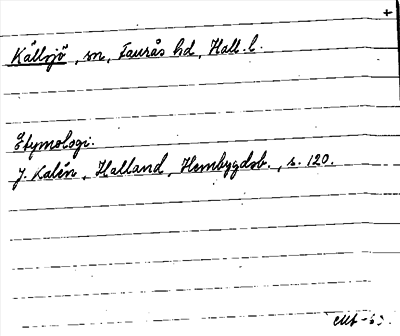 +
Källsjö, sn, Faurås hd, Hall. l.
Etymologi.
J. Kalén, Halland, Hembygdsb., s. 120.